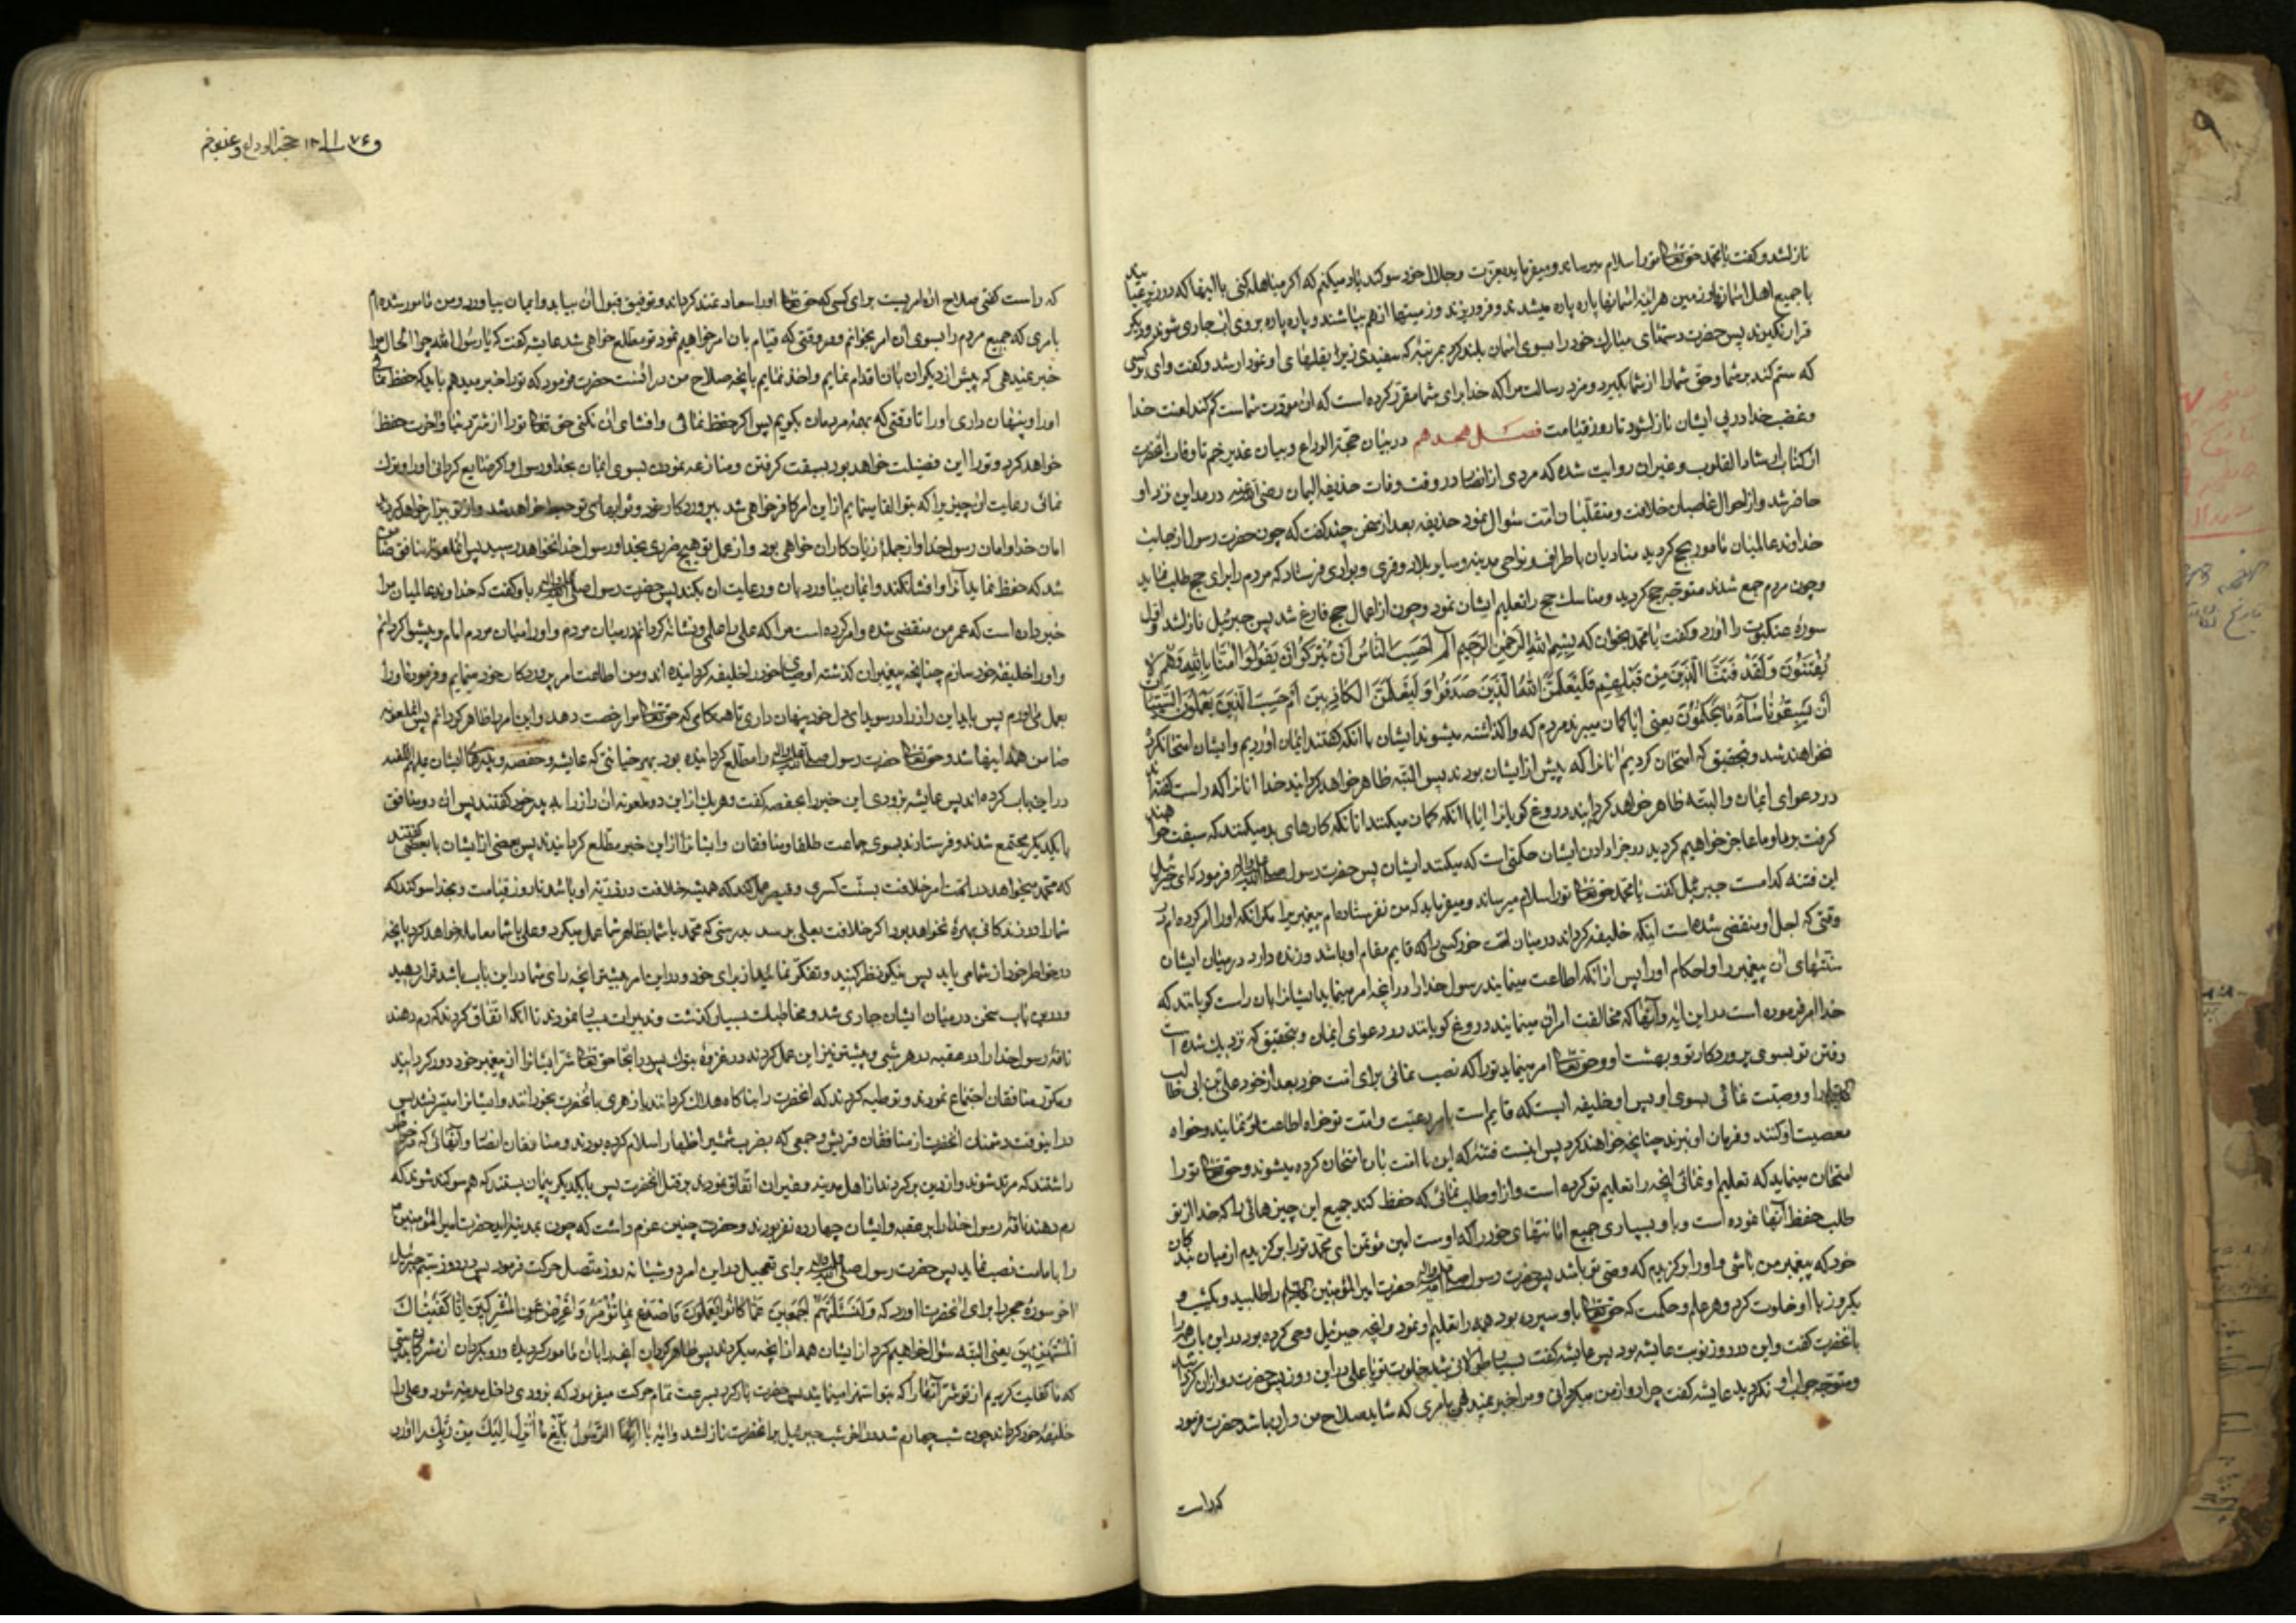 نازل شد و گفت یا محمد حق تعالی تو را سلام میرساند و میفرماید بعزت و جلال خود سوگند یاد میکنم که اگر مباهله کنی با اینها که در زیر عبا
با جمیع اهل آسمانها و زمین هراینه آسمانها پاره پاره میشدند و فرو ریزند و زمینها از هم بپاشند و پاره پاره بروی آب جاری شوند و دیگر
قرار نگیرند پس حضرت دستهای مبارک خود را بسوی آسمان بلند کرد بمرتبه که سفیدی زیر بغلهای او نمودار شد و گفت وای بر کسی
که ستم کند بر شما و حق شما را از شما بگیرد و مزد رسالت مرا که خدا برای شما مقرر کرده است که آن مودت شماست کم کند لعنت خدا
و غضب خدا در پی ایشان نازل شود تا روز قیامت فصل هجدهم در بیان حجة الوداع و بیان غدیر خم تا وفات آنحضرت
از کتاب ارشاد القلوب و غیر ان روایت شده که مردی از انصار در وقت وفات حذیفه الیمان رضی الله عنه در مداین نزد او
حاضر شد و از احوال غاصبان خلافت و متقلبان امت سئوال نمود حذیفه بعد از سخن چند گفت که چون حضرت رسول از جانب
خداوند عالمیان مامور بحج گردید منادیان باطراف و نواحی مدینه و سایر بلاد و قری و بوادی فرستاد که مردم را برای حج طلب نماید
و چون مردم جمع شدند متوجه حج گردید و مناسک حج را تعلیم ایشان نمود و چون از اعمال حج فارغ شد پس جبرئیل نازل شد و اول
سورهٔ عنکبوت را آورد و گفت یا محمد بخوان که بِسْمِ اللهِ الرَّحْمٰنِ الرَّحِیمِ الٓمٓ اَحَسِبَ النَّاسُ اَنْ یُتْرَکُوا اَنْ یَقُولُوا اٰمَنَّا بِاللهِ وَهُمْ لا
یُفْتَنُونَ وَلَقَدْ فَتَنَّا الَّذِینَ مِنْ قَبْلِهِمْ فَلَیَعْلَمَنَّ اللهُ الَّذِینَ صَدَقُوا وَلَیَعْلَمَنَّ الْکَاذِبِینَ اَمْ حَسِبَ الَّذِینَ یَعْمَلُونَ السَّیِّئَاتِ
اَنْ یَسْبِقُونَا سَآءَ مَا یَحْکُمُونَ یعنی ایا گمان میبرند مردم که واگذاشته میشوند ایشان با آنکه گفتند ایمان آوردیم و ایشان امتحان کرده
نخواهند شد و بتحقیق که امتحان کردیم آنانرا که پیش از ایشان بودند پس البته ظاهر خواهد گردانید خدا آنانرا که راست گفتند
در دعوای ایمان و البته ظاهر خواهد گردانید دروغ گویانرا ایا با آنکه گمان میکنند آنانکه کارهای بد میکنند که سبقت خواهند
گرفت بر ما و ما عاجز خواهیم گردید در جزا دادن ایشان حکمی است که میکنند ایشان پس حضرت رسول صلی الله علیه و اله فرمود که ای جبرئیل
این فتنه کدامست جبرئیل گفت یا محمد حق تعالی تو را سلام میرساند و میفرماید که من نفرستاده‌ام پیغمبری را مگر آنکه او را امر کرده‌ام در
وقتی که اجل او منقضی شده است اینکه خلیفه گرداند در میان امت خود کسی را که قایم مقام او باشد و زنده دارد در میان ایشان
سنتهای آن پیغمبر را و احکام او را پس از آنکه اطاعت مینمایند رسول خدا را در آنچه امر مینماید ایشانرا بان راست گویانند که
خدا امر فرموده است در این آیه و آنها که مخالفت امر آن مینمایند دروغ گویانند در دعوای ایمان و بتحقیق که نزدیک شده است
رفتن تو بسوی پروردگار تو و بهشت او و حق تعالی امر مینماید تو را که نصب نمائی برای امت خود بعد از خود علی بن ابی طالب
را و وصیت نمائی بسوی او پس او خلیفه ایست که قایم است بامر رعیت و امت تو خواه اطاعت او نمایند و خواه
معصیت او کنند و فرمان او نبرند چنانچه خواهند کرد پس اینست فتنهٔ که این امت بان امتحان کرده میشوند و حق تعالی تو را
امتحان مینماید که تعلیم او نمائی آنچه را تعلیم تو کرده است و از او طلب نمائی که حفظ کند جمیع این چیزهائی را که خدا از تو
طلب حفظ آنها نموده است و باو بسپاری جمیع امانتهای خود را که اوست امین مؤتمن ای محمد تو را برگزیدم از میان بندگان
خود که پیغمبر من باشی و او را برگزیدم که وصی تو باشد پس حضرت رسول صلی الله علیه و اله حضرت امیر المؤمنین علیه السلام را طلبید و یکشب و
یکروز با او خلوت کرد و هر علم و حکمت که حق تعالی باو سپرده بود همه را تعلیم او نمود و آنچه جبرئیل وحی کرده بود در این باب همه را
بآنحضرت گفت و این در روز نوبت عایشه بود پس عایشه گفت بسیار طولانی شد خلوت تو با علی در این روز پس حضرت رو از آن گردانید
و متوجه جواب او نگردید عایشه گفت چرا رو از من میگردانی و مرا خبر نمیدهی بامری که شاید صلاح من در ان باشد حضرت فرمود
که راست
حجة الوداع و غدیر خم
که راست گفتی صلاح آن امریست برای کسی که حق تعالی او را سعادتمند گرداند و توفیق قبول آن بیابد و ایمان بیاورد و من مامور شده‌ام
بامری که جمیع مردم را بسوی آن امر بخوانم و در وقتی که قیام بان امر خواهیم نمود تو مطلع خواهی شد عایشه گفت که یا رسول الله چرا الحال مرا
خبر نمیدهی که پیش از دیگران بان اقدام نمایم و اخذ نمایم بآنچه صلاح من در آنست حضرت فرمود که تو را خبر میدهم باید که حفظ نمائی
او را و پنهان داری او را تا وقتی که بهمه مردمان بگویم پس اگر حفظ نمائی و افشای آن نکنی حق تعالی تو را از شر دنیا و آخرت حفظ
خواهد کرد و تو را این فضیلت خواهد بود بسبقت گرفتن و منازعه نمودن بسوی ایمان بخدا و رسول و اگر ضایع گردانی او را و ترک
نمائی رعایت آن چیزیرا که بتو القا مینمایم از این امر کافر خواهی شد بپروردگار خود و ثوابهای تو حبط خواهد شد و از تو بیزار خواهد گردید
امان خدا و امان رسول خدا و از جملهٔ زیان کاران خواهی بود و از عمل تو هیچ ضرری بخدا و رسول خدا نخواهد رسید پس آن ملعونه منافق ضامن
شد که حفظ نماید آنرا و افشا نکند و ایمان بیاورد بان و رعایت ان بکند پس حضرت رسول صلی الله علیه و اله باو گفت که خداوند عالمیان مرا
خبر داده است که عمر من منقضی شده و امر کرده است مرا که علی را علمی و نشانهٔ گردانم در میان مردم و او را در میان مردم امام و پیشوا گردانم
و او را خلیفهٔ خود سازم چنانچه پیغمبران گذشته اوصیای خود را خلیفه گردانیده اند و من اطاعت امر پروردگار خود مینمایم و فرمودهٔ او را
بعمل می‌آورم پس باید این راز را در سویدای دل خود پنهان داری تا هنگامی که حق تعالی مرا رخصت دهد و این امر را ظاهر گردانم پس آن ملعونه
ضامن همه اینها شد و حق تعالی حضرت رسول صلی الله علیه و اله را مطلع گردانیده بود بهر خیانتی که عایشه و حفصه و پدرهای ایشان علیهم اللعنه
در این باب کرده‌اند پس عایشه بزودی این خبر را بحفصه گفت و هریک از این دو ملعونه ان راز را به پدر خود گفتند پس ان دو منافق
با یکدیگر مجتمع شدند و فرستادند بسوی جماعت طلقا و منافقان و ایشانرا از این خبر مطلع گردانیدند پس بعضی از ایشان با بعضی گفتند
که محمد میخواهد در امت امر خلافت بسنت کسری و قیصر عمل کند که همیشه خلافت در ذریه او باشد تا روز قیامت و بخدا سوگند که
شما را در زندگانی بهرهٔ نخواهد بود اگر خلافت بعلی برسد بدرستی که محمد با شما بظاهر شما عمل میکرد و علی با شما معامله خواهد کرد بآنچه
در خاطر خود از شما می یابد پس نیکو نظر کنید و تفکر نمائید از برای خود در این امر بیشتر آنچه رای شما در این باب باشد قرار دهید
و در این باب سخن در میان ایشان جاری شد و مخاطبات بسیار گذشت و تدبیرات بسیار نمودند تا آنکه اتفاق کردند که رم دهند
ناقهٔ رسول خدا را در عقبه هرشی و پیشتر نیز این عمل کردند در غزوهٔ تبوک پس در آنجا حق تعالی شر ایشانرا از پیغمبر خود دور گردانید
و مکرر منافقان اجتماع نمودند و توطیه کردند که آنحضرت را بناگاه هلاک گردانند یا زهری بآنحضرت بخورانند و ایشانرا میسر نشد پس
در اینوقت دشمنان آنحضرت از منافقان قریش و جمعی که بضرب شمشیر اظهار اسلام کرده بودند و منافقان انصار و آنهائی که در خاطر
داشتند که مرتد شوند و از دین برگردند از اهل مدینه و غیر ان اتفاق نمودند بر قتل آنحضرت پس با یکدیگر پیمان بستند که هم سوگند شوند که
رم دهند ناقهٔ رسول خدا را بر عقبه و ایشان چهارده نفر بودند و حضرت چنین عزم داشت که چون بمدینه آید حضرت امیر المؤمنین
را بامامت نصب نماید پس حضرت رسول صلی الله علیه و اله برای تعجیل در این امر دو شبانه روز متصل حرکت فرمود پس در روز سیم جبرئیل
آخر سورهٔ حجر را برای آنحضرت آورد که وَلَنَسْئَلَنَّهُمْ اَجْمَعِینَ عَمَّا کَانُوا یَعْمَلُونَ فَاصْدَعْ بِمَا تُؤْمَرُ وَاَعْرِضْ عَنِ الْمُشْرِکِینَ اِنَّا کَفَیْنَاکَ
الْمُسْتَهْزِئِینَ یعنی البته سئوال خواهیم کرد از ایشان همه از آنچه میکردند پس ظاهر گردان آنچه را بان مامور گردیدهٔ و رو بگردان از مشرکان بدرستی
که ما کفایت کردیم از تو شر آنها را که بتو استهزا مینمایند پس حضرت بار کرد بسرعت تمام حرکت میفرمود که بزودی داخل مدینه شود و علی را
خلیفهٔ خود گرداند چون شب چهارم شد در آخر شب جبرئیل بر آنحضرت نازل شد و آیه یَا اَیُّهَا الرَّسُولُ بَلِّغْ مَا اُنْزِلَ اِلَیْکَ مِنْ رَبِّکَ را آورد